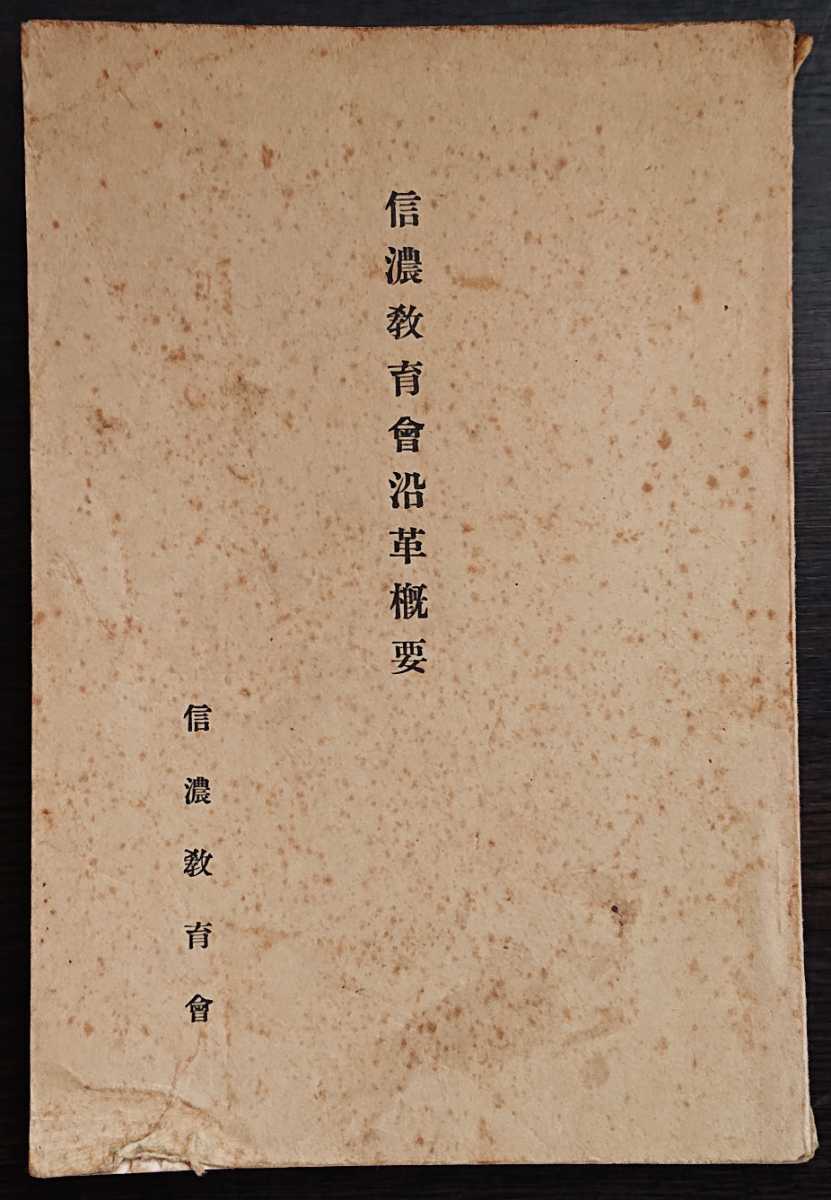 信濃教育會沿革概要
信濃教育會